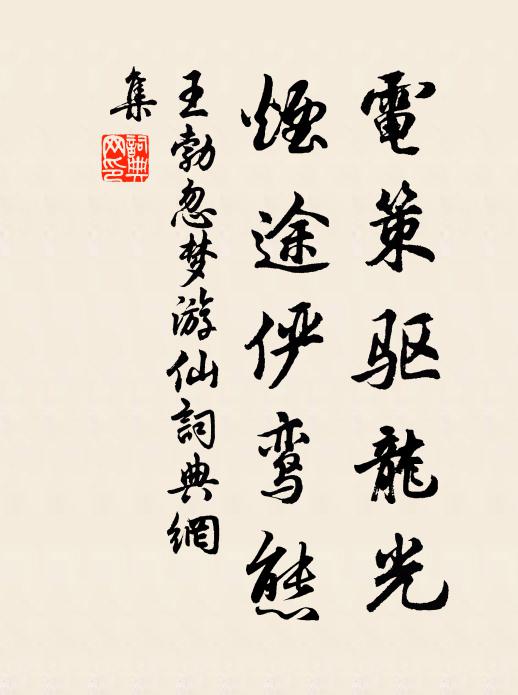 電策驱龍光
煙途俨鸾態
王勃忽梦游仙詞典網
集
詞典网印